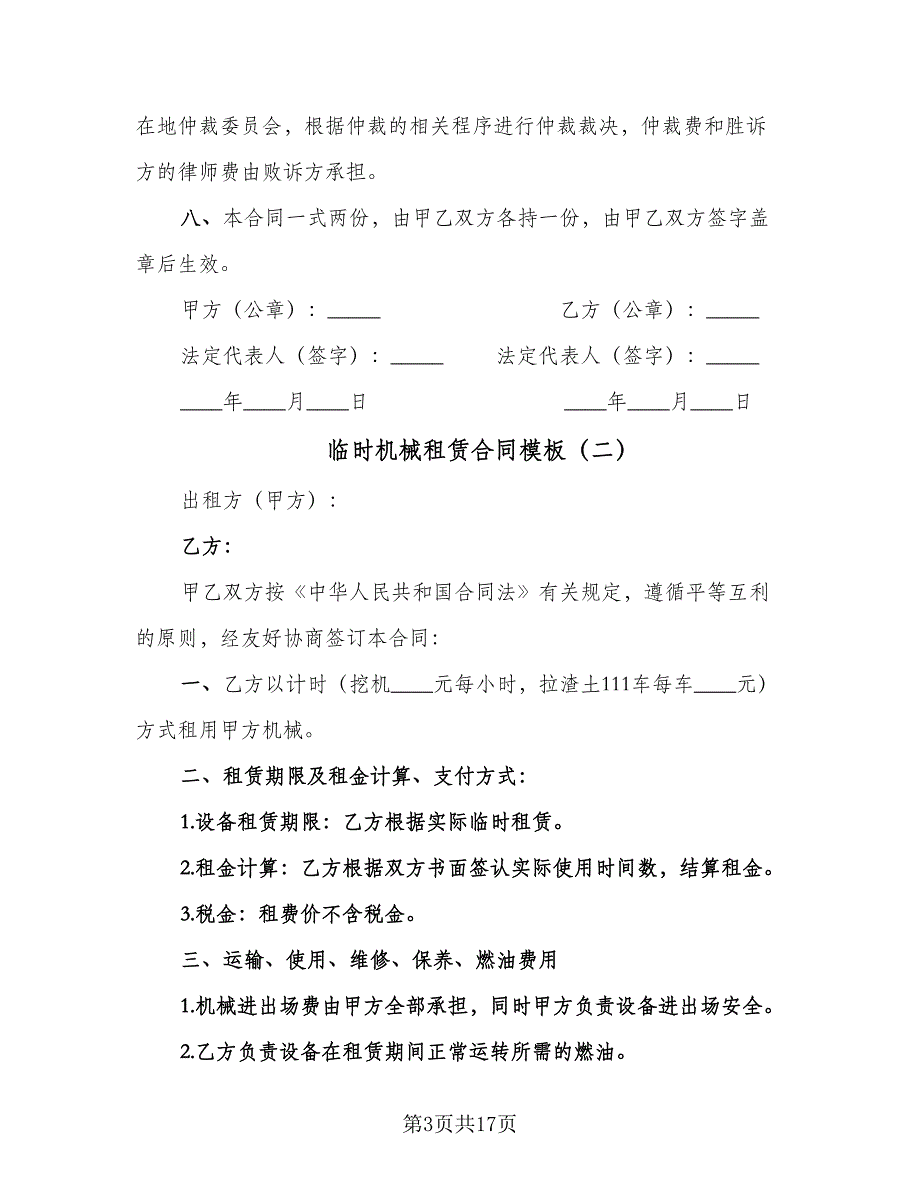 在地仲裁委员会，根据仲裁的相关程序进行仲裁裁决，仲裁费和胜诉
方的律师费由败诉方承担。
八、本合同一式两份，由甲乙双方各持一份，由甲乙双方签字盖
章后生效。
甲方（公章）：_____ 乙方（公章）：_____
法定代表人（签字）：_____ 法定代表人（签字）：_____
____年____月____日 ____年____月____日
临时机械租赁合同模板（二）
出租方（甲方）：
乙方：
甲乙双方按《中华人民共和国合同法》有关规定，遵循平等互利
的原则，经友好协商签订本合同：
一、乙方以计时（挖机____元每小时，拉渣土111车每车____元）
方式租用甲方机械。
二、租赁期限及租金计算、支付方式：
1.设备租赁期限：乙方根据实际临时租赁。
2.租金计算：乙方根据双方书面签认实际使用时间数，结算租金。
3.税金：租费价不含税金。
三、运输、使用、维修、保养、燃油费用
1.机械进出场费由甲方全部承担，同时甲方负责设备进出场安全。
2.乙方负责设备在租赁期间正常运转所需的燃油。
第3页共17页